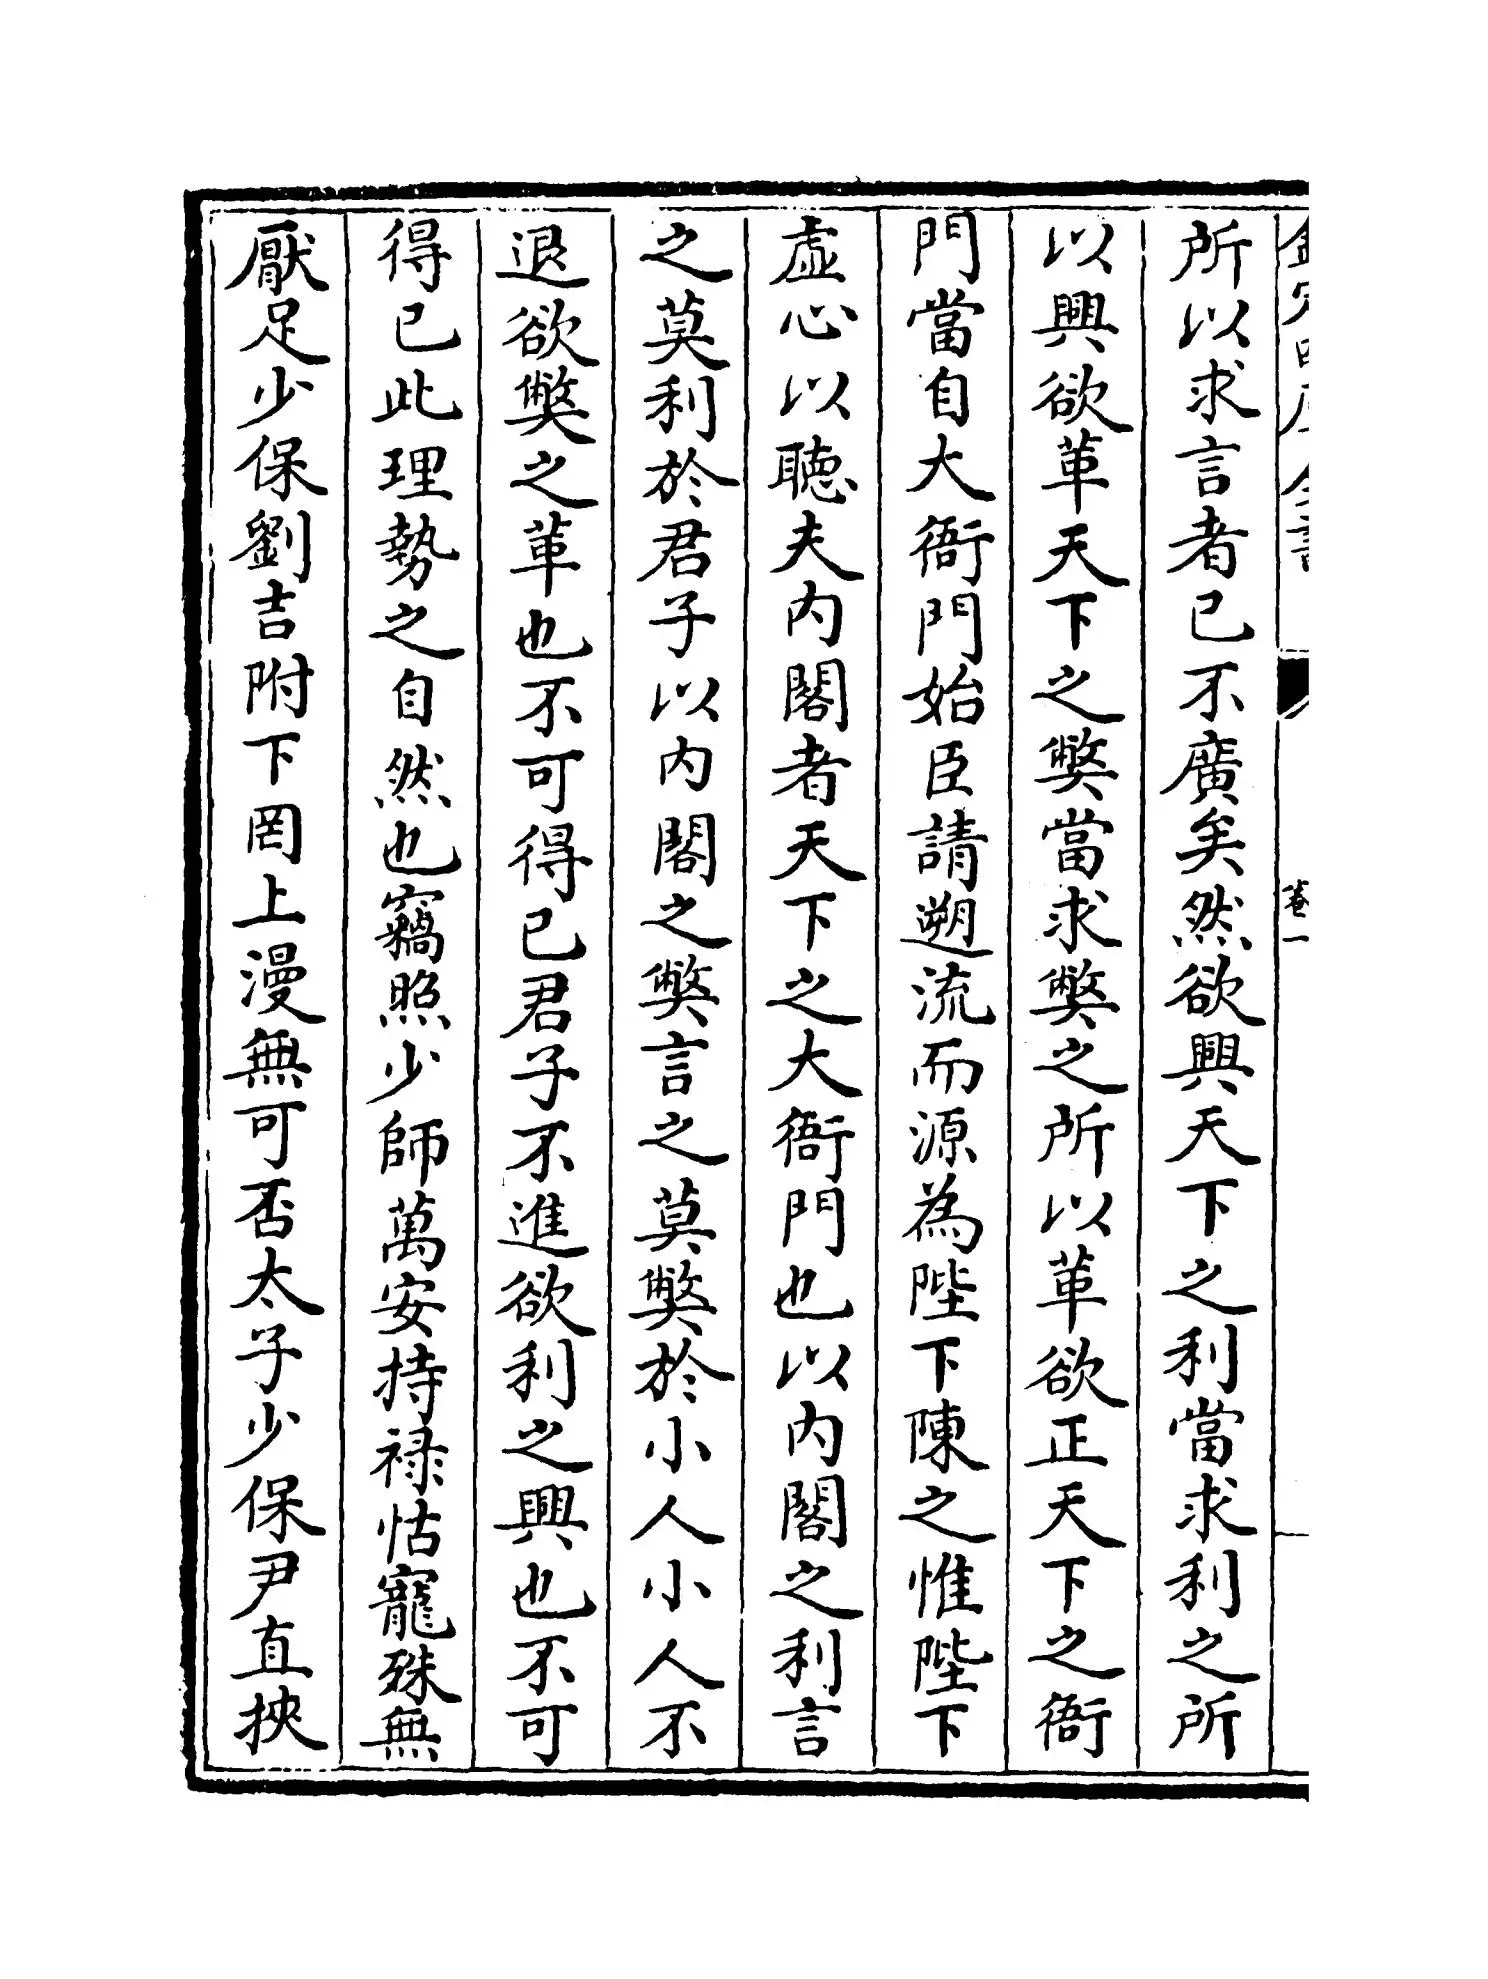 欽定四庫全書
卷一
所以求言者已不廣矣然欲興天下之利當求利之所
以興欲革天下之弊當求弊之所以革欲正天下之衙
門當自大衙門始臣請遡流而源為陛下陳之惟陛下
虚心以聽夫内閣者天下之大衙門也以内閣之利言
之莫利於君子以内閣之弊言之莫弊於小人小人不
退欲弊之革也不可得已君子不進欲利之興也不可
得已此理勢之自然也竊照少師萬安持禄怙寵殊無
厭足少保劉吉附下罔上漫無可否太子少保尹直挾